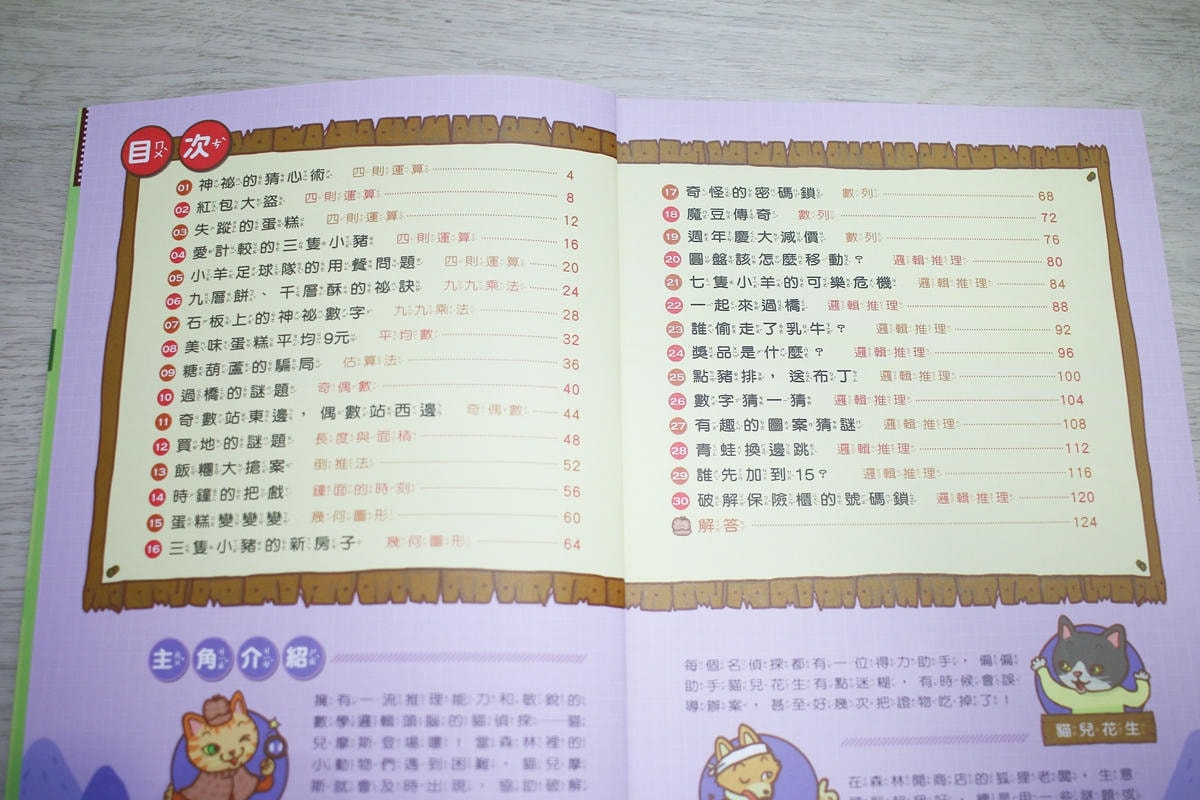 目次
01 神祕的猜心術 四則運算 4
02 紅包大盜 四則運算 8
03 失蹤的蛋糕 四則運算 12
04 愛計較的三隻小豬 四則運算 16
05 小羊足球隊的用餐問題 四則運算 20
06 九層餅、千層酥的祕訣 九九乘法 24
07 石板上的神祕數字 九九乘法 28
08 美味蛋糕平均9元 平均數 32
09 糖葫蘆的騙局 估算法 36
10 過橋的謎題 奇偶數 40
11 奇數站東邊,偶數站西邊 奇偶數 44
12 買地的謎題 長度與面積 48
13 飯糰大搶案 倒推法 52
14 時鐘的把戲 鐘面的時刻 56
15 蛋糕變變變 幾何圖形 60
16 三隻小豬的新房子 幾何圖形 64
17 奇怪的密碼鎖 數列 68
18 魔豆傳奇 數列 72
19 週年慶大減價 數列 76
20 圓盤該怎麼移動? 邏輯推理 80
21 七隻小羊的可樂危機 邏輯推理 84
22 一起來過橋 邏輯推理 88
23 誰偷走了乳牛? 邏輯推理 92
24 獎品是什麼? 邏輯推理 96
25 點豬排,送布丁 邏輯推理 100
26 數字猜一猜 邏輯推理 104
27 有趣的圖案猜謎 邏輯推理 108
28 青蛙換邊跳 邏輯推理 112
29 誰先加到15? 邏輯推理 116
30 破解保險櫃的號碼鎖 邏輯推理 120
解答 124
主角介紹
擁有一流推理能力和敏銳的
數學邏輯頭腦的貓偵探——貓
兒摩斯登場嘍!當森林裡的
小動物們遇到困難,貓兒摩
斯就會及時出現,協助破解
每個名偵探都有一位得力助手,偏偏
助手貓兒花生有點迷糊,有時候會誤
導辦案,甚至好幾次把證物吃掉了!
貓兒花生
在森林開商店的狐狸老闆,生意